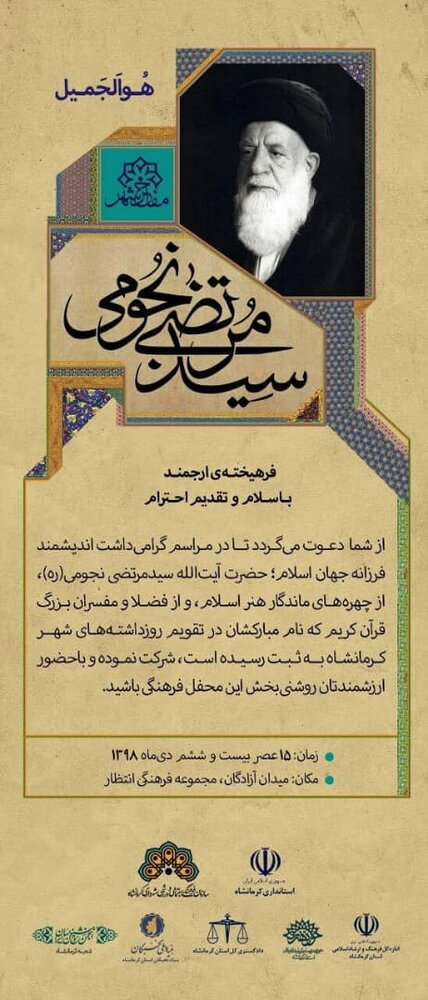 هُوالَجَمیل
مفاخر شهر
سید مرتضی نجومی
فرهیخته‌ی ارجمند
باسلام و تقدیم احترام
از شما دعوت می‌گردد تا در مراسم گرامی‌داشت اندیشمند
فرزانه جهان اسلام؛ حضرت آیت‌الله سیدمرتضی نجومی(ره)،
از چهره‌های ماندگار هنر اسلام، و از فضلا و مفسران بزرگ
قرآن کریم که نام مبارکشان در تقویم روزداشته‌های شهر
کرمانشاه به ثبت رسیده است، شرکت نموده و باحضور
ارزشمندتان روشنی‌بخش این محفل فرهنگی باشید.
زمان: ۱۵ عصر بیست و ششم دی‌ماه ۱۳۹۸
مکان: میدان آزادگان، مجموعه فرهنگی انتظار
جمهوری اسلامی ایران
استانداری کرمانشاه
اداره کل فرهنگ و ارشاد اسلامی
استان کرمانشاه
دادگستری کل استان کرمانشاه
بنیاد ملی نخبگان
بنیاد نخبگان استان کرمانشاه
شعبه کرمانشاه